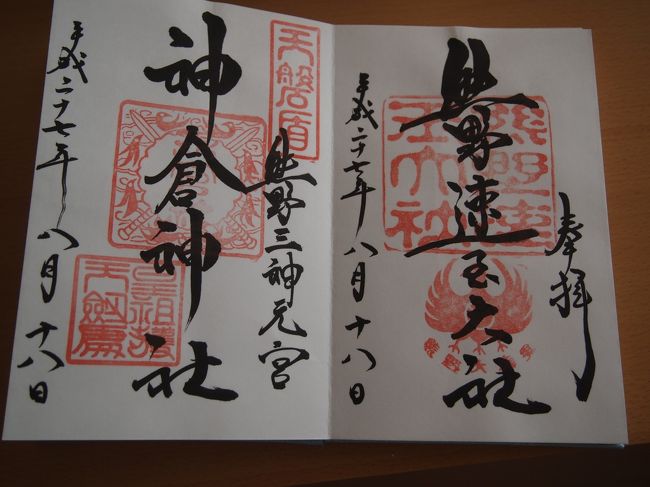 奉拝
熊野速玉大社
熊野速玉大社
平成二十七年八月十八日
天磐盾
熊野三神元宮
神倉神社
平成二十七年八月十八日